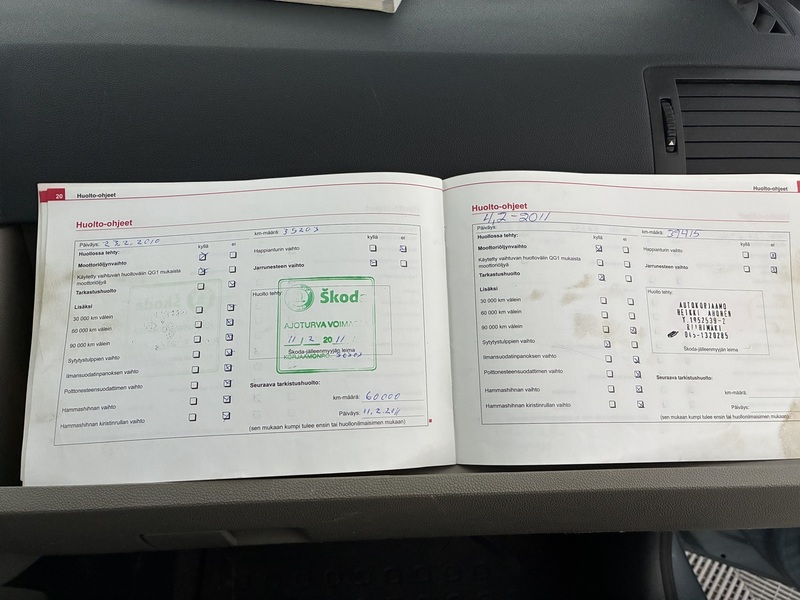 20 Huolto-ohjeet
Huolto-ohjeet
Päiväys: 23.2.2010 km-määrä: 35203
Huollossa tehty: kyllä ei kyllä ei
Moottoriöljynvaihto
Happianturin vaihto
Käytetty vaihtuvan huoltovälin QG1 mukaista
moottoriöljyä
Jarrunesteen vaihto
Tarkastushuolto
Lisäksi
Huolto tehty:
30 000 km välein
60 000 km välein
90 000 km välein
Sytytystulppien vaihto
Ilmansuodatinpanoksen vaihto
Polttonesteensuodattimen vaihto
Hammashihnan vaihto
Hammashihnan kiristinrullan vaihto
Škod
AJOTURVA VOIMA
11 / 2 20 11
Škoda-jälleenmyyjän leima
Seuraava tarkistushuolto:
km-määrä: 60000
Päiväys: 11.2.2011
(sen mukaan kumpi tulee ensin tai huollonilmaisimen mukaan)
Huolto-ohjeet
Huolto-ohjeet
4,2-2011
Päiväys: km-määrä: 39415
Huollossa tehty: kyllä ei kyllä ei
Moottoriöljynvaihto
Happianturin vaihto
Käytetty vaihtuvan huoltovälin QG1 mukaista
moottoriöljyä
Jarrunesteen vaihto
Tarkastushuolto
Lisäksi
Huolto tehty:
30 000 km välein
60 000 km välein
90 000 km välein
Sytytystulppien vaihto
Ilmansuodatinpanoksen vaihto
Polttonesteensuodattimen vaihto
Hammashihnan vaihto
Hammashihnan kiristinrullan vaihto
AUTOKORJAAMO
HEIKKI AHONEN
Y 1952539-2
RIIHIMÄKI
045-1320285
Škoda-jälleenmyyjän leima
Seuraava tarkistushuolto:
km-määrä:
Päiväys:
(sen mukaan kumpi tulee ensin tai huollonilmaisimen mukaan)